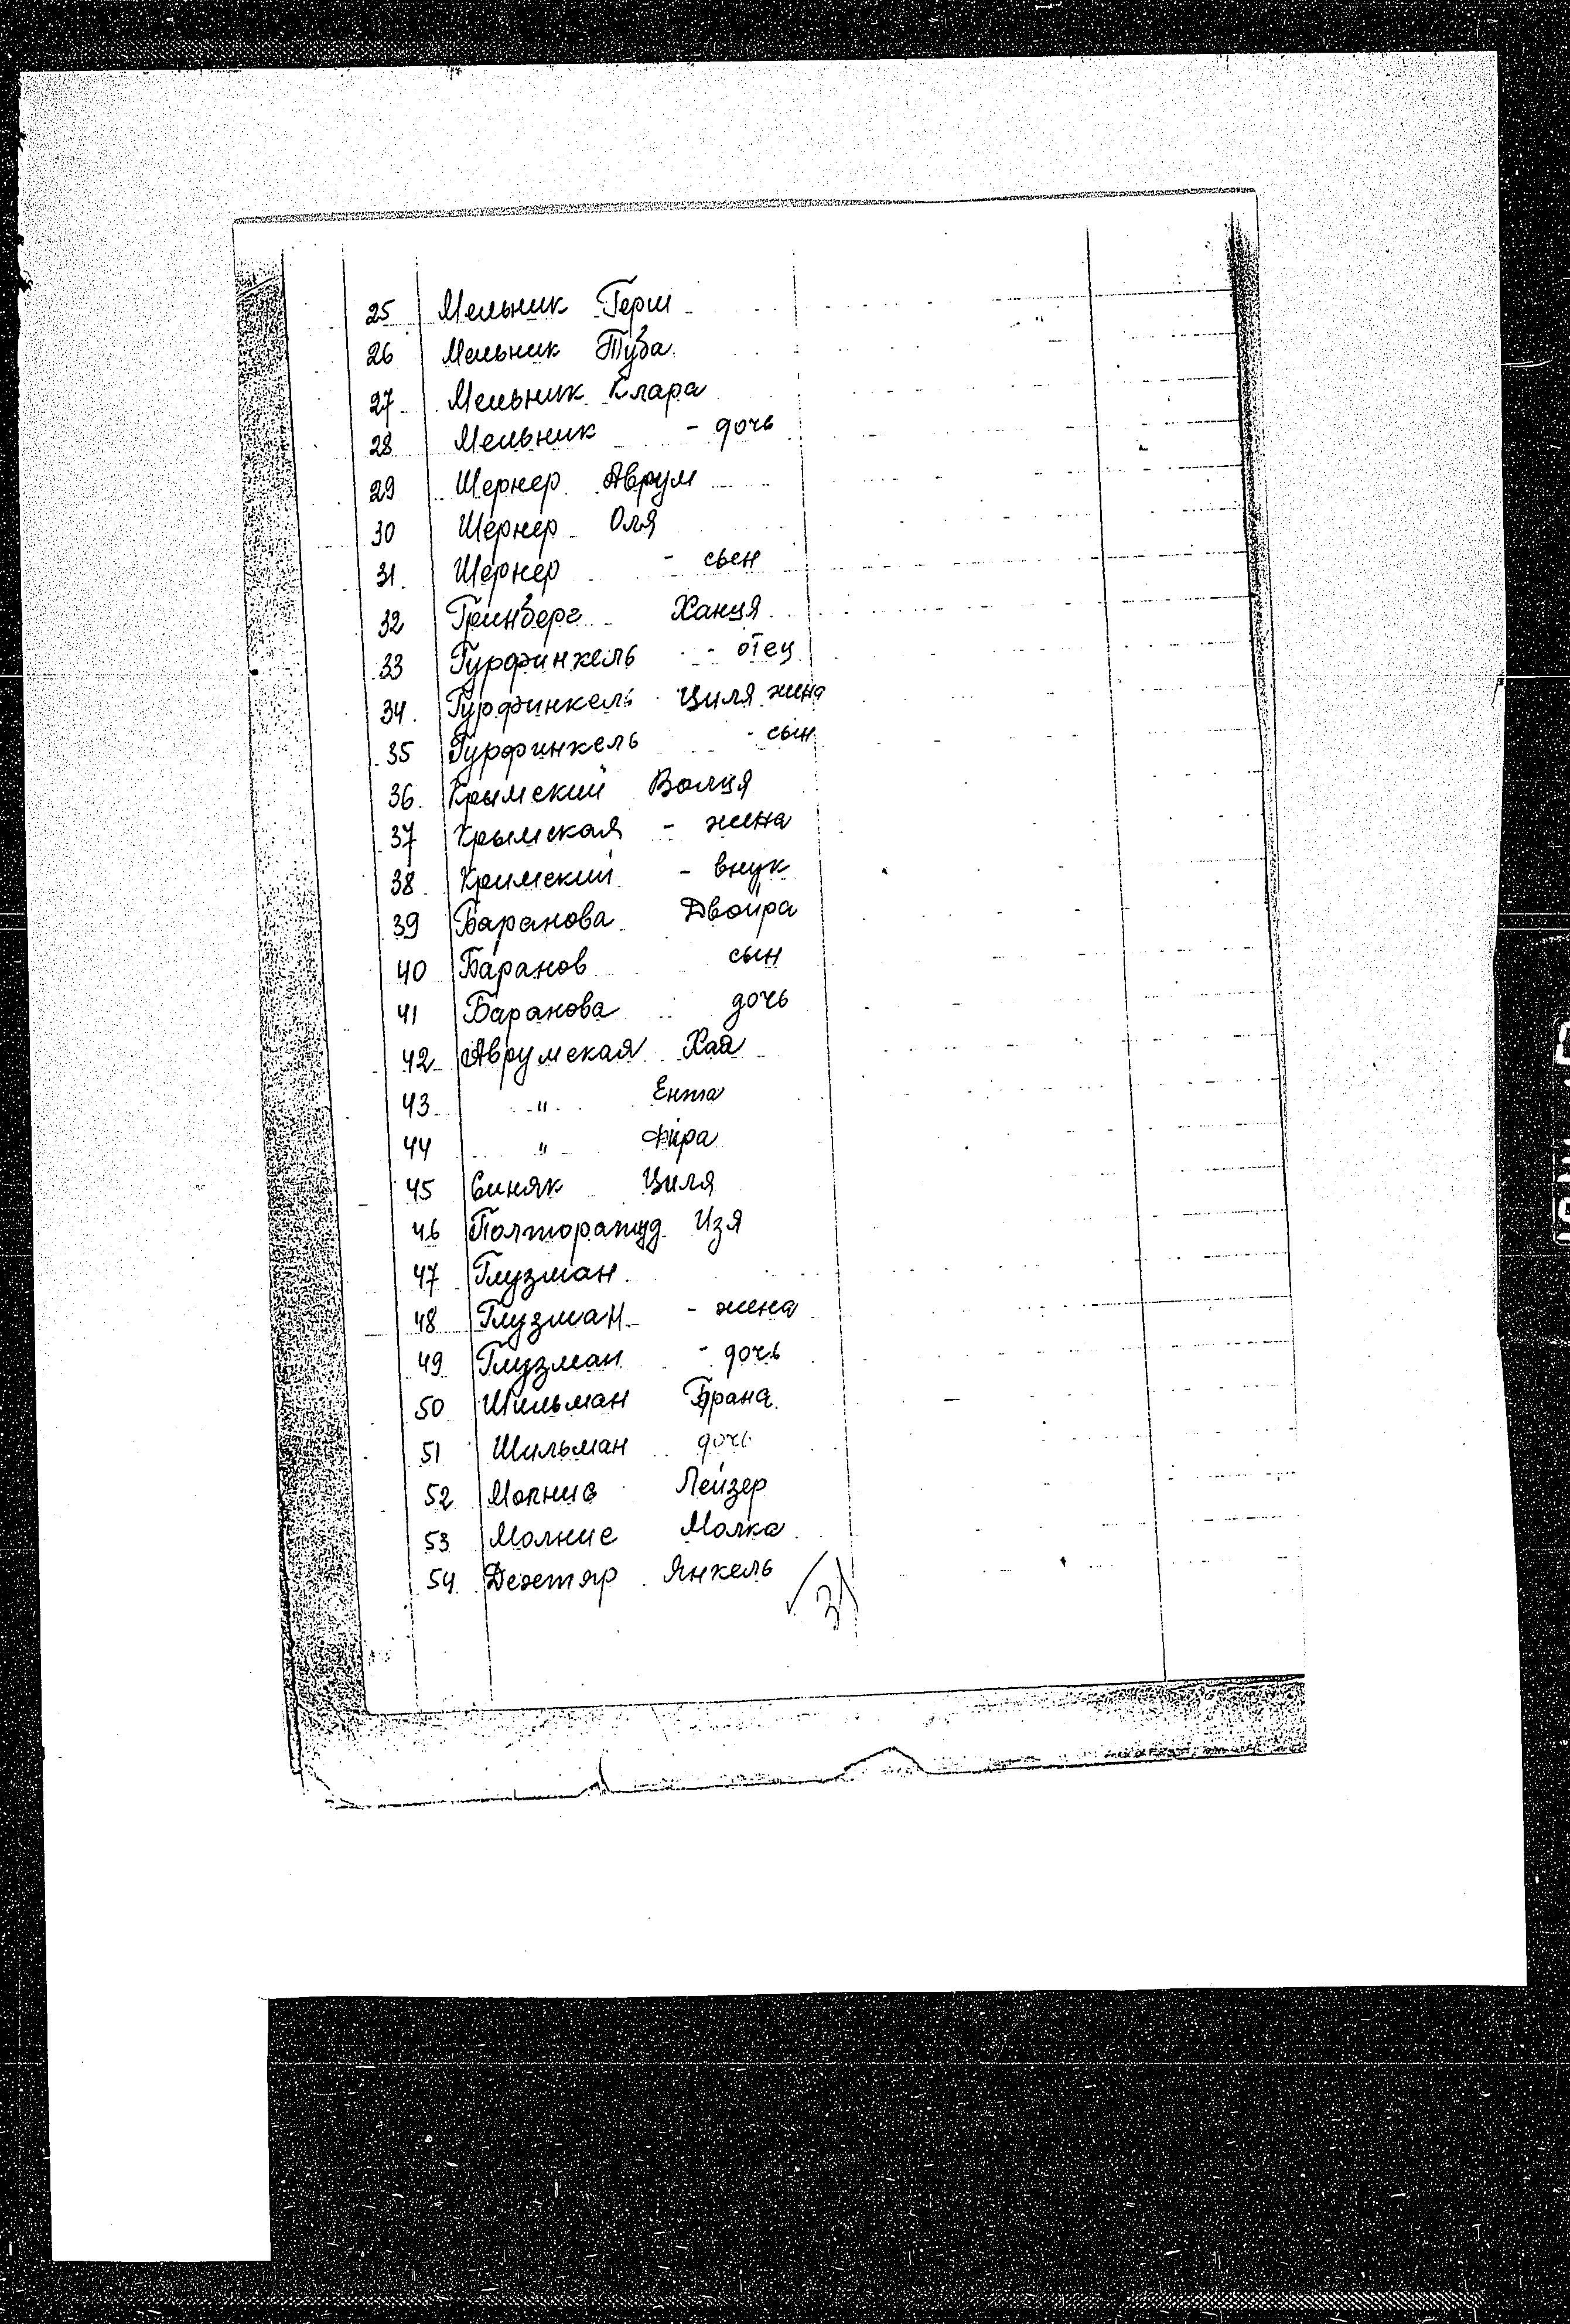 25 Мельник Герш
26 Мельник Туба
27 Мельник Клара
28 Мельник - дочь
29 Шернер Аврум
30 Шернер Оля
31. Шернер - сын
32 Гринберг Ханця
33 Гурфинкель - отец
34. Гурфинкель Циля жена
35 Гурфинкель - сын
36. Крымский Волця
37 Крымская - жена
38. Кримский - внук
39 Баранова Двойра
40 Баранов сын
41 Баранова дочь
42 Аврумская Хая
43. " Ента
44 " Фира
45 Синяк Циля
46 Изя
47 Глузман
48 Глузман - жена
49 Глузман - дочь
50 Шильман Брана
51 Шильман дочь
52 Молнис Лейзер
53 Молние Малка
54. Дехтяр Янкель
31